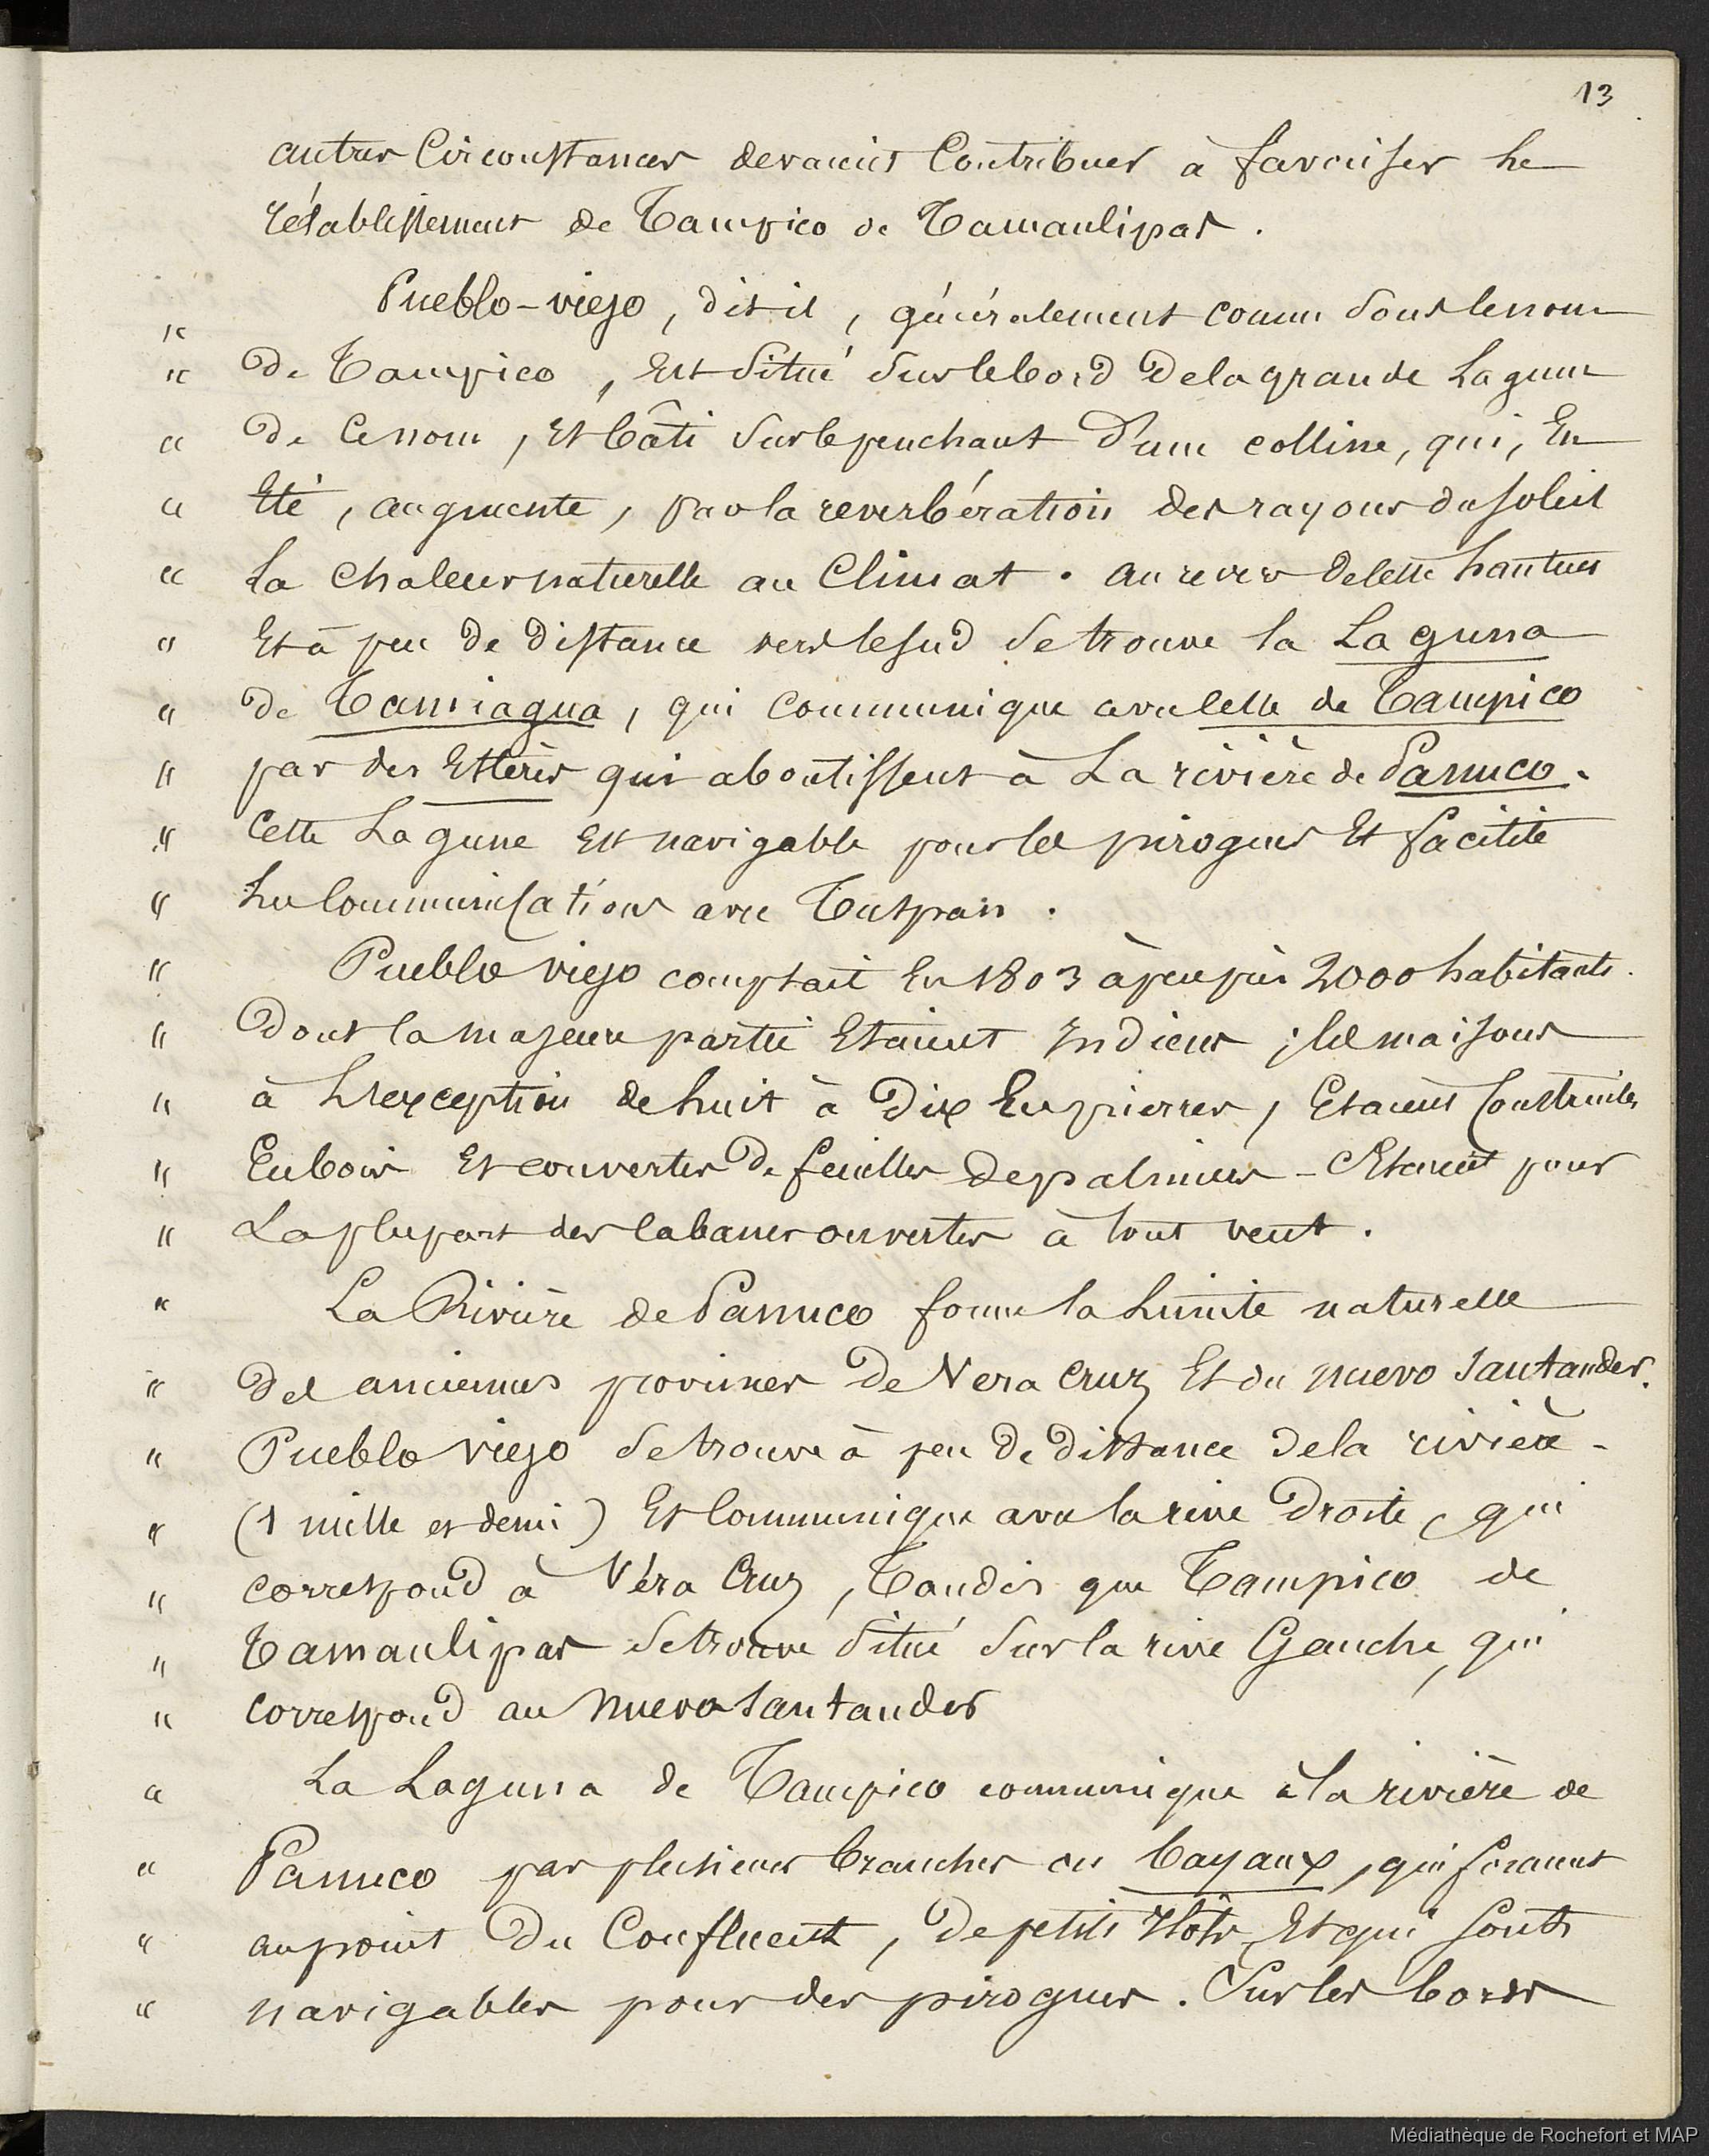 13
autres Circonstances devaient Contribuer à favoriser le
rétablissement de Tampico de Tamaulipas.
" Pueblo-viejo, dit-il, généralement connu sous le nom
" de Tampico, Est situé sur le bord de la grande Lagune
" de Ce nom, Et bâti sur le penchant d'une colline, qui, En
" Eté, augmente, par la reverbération des rayons du soleil
" la Chaleur naturelle au Climat. au revers de Cette hauteur
" Et à peu de distance vers le sud se trouve la Laguna
" de Tamiagua, qui Communique avec Celle de Tampico
" par des Esteres qui aboutissent à La rivière de Panuco.
" Cette Lagune Est navigable pour les pirogues Et facilite
" les Communications avec Tuspan.
" Pueblo viejo comptait En 1803 à peu près 2000 habitants.
" dont la majeure partie Etaient Indiens ; les maisons
" à L'exception de huit à Dix En pierres, Etaient Construites
" En bois Et couvertes de feuilles de palmiers - C'Etaient pour
" La plupart des Cabanes ouvertes à tout vent.
" La Rivière de Panuco forme la Limite naturelle
" des anciennes provinces de Vera Cruz Et du nuevo Santander.
" Pueblo viejo se trouve à peu de distance de la rivière -
" (1 mille et demi) Et Communique avec la rive Droite, qui
" correspond à Véra Cruz, Tandis que Tampico de
" Tamaulipas se trouve situé sur la rive Gauche, qui
" correspond au Nuevo Santander
" La Laguna de Tampico communique à la rivière de
" Panuco par plusieurs branches ou bayaux, qui forment
" au point du Confluent, de petits Ilôts, Et qui sont
" navigables pour des pirogues. Sur les bords
Médiathèque de Rochefort et MAP